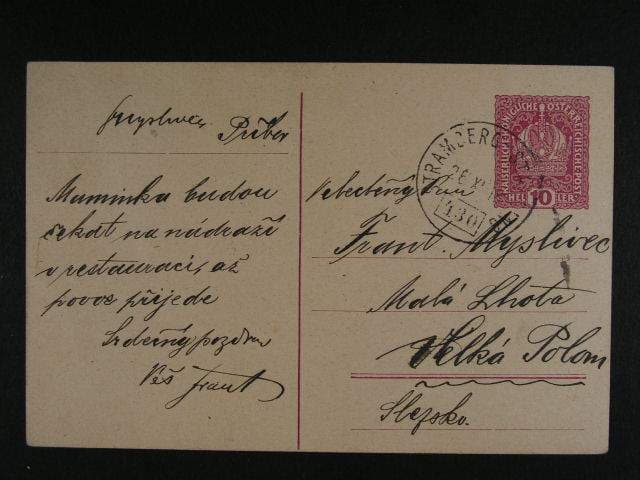 Myslivec Příbor
Maminka budou
čekat na nádraží
v restauraci, až
povoz přijede
Srdečný pozdrav
Váš Frant
KAISERLICHE KÖNIGLICHE ÖSTERREICHISCHE POST
10
HELLER
STRAMBERG
26 XI
130
Velectěný Pan
Frant. Myslivec
Malá Lhota
Velká Polom
Slezsko.